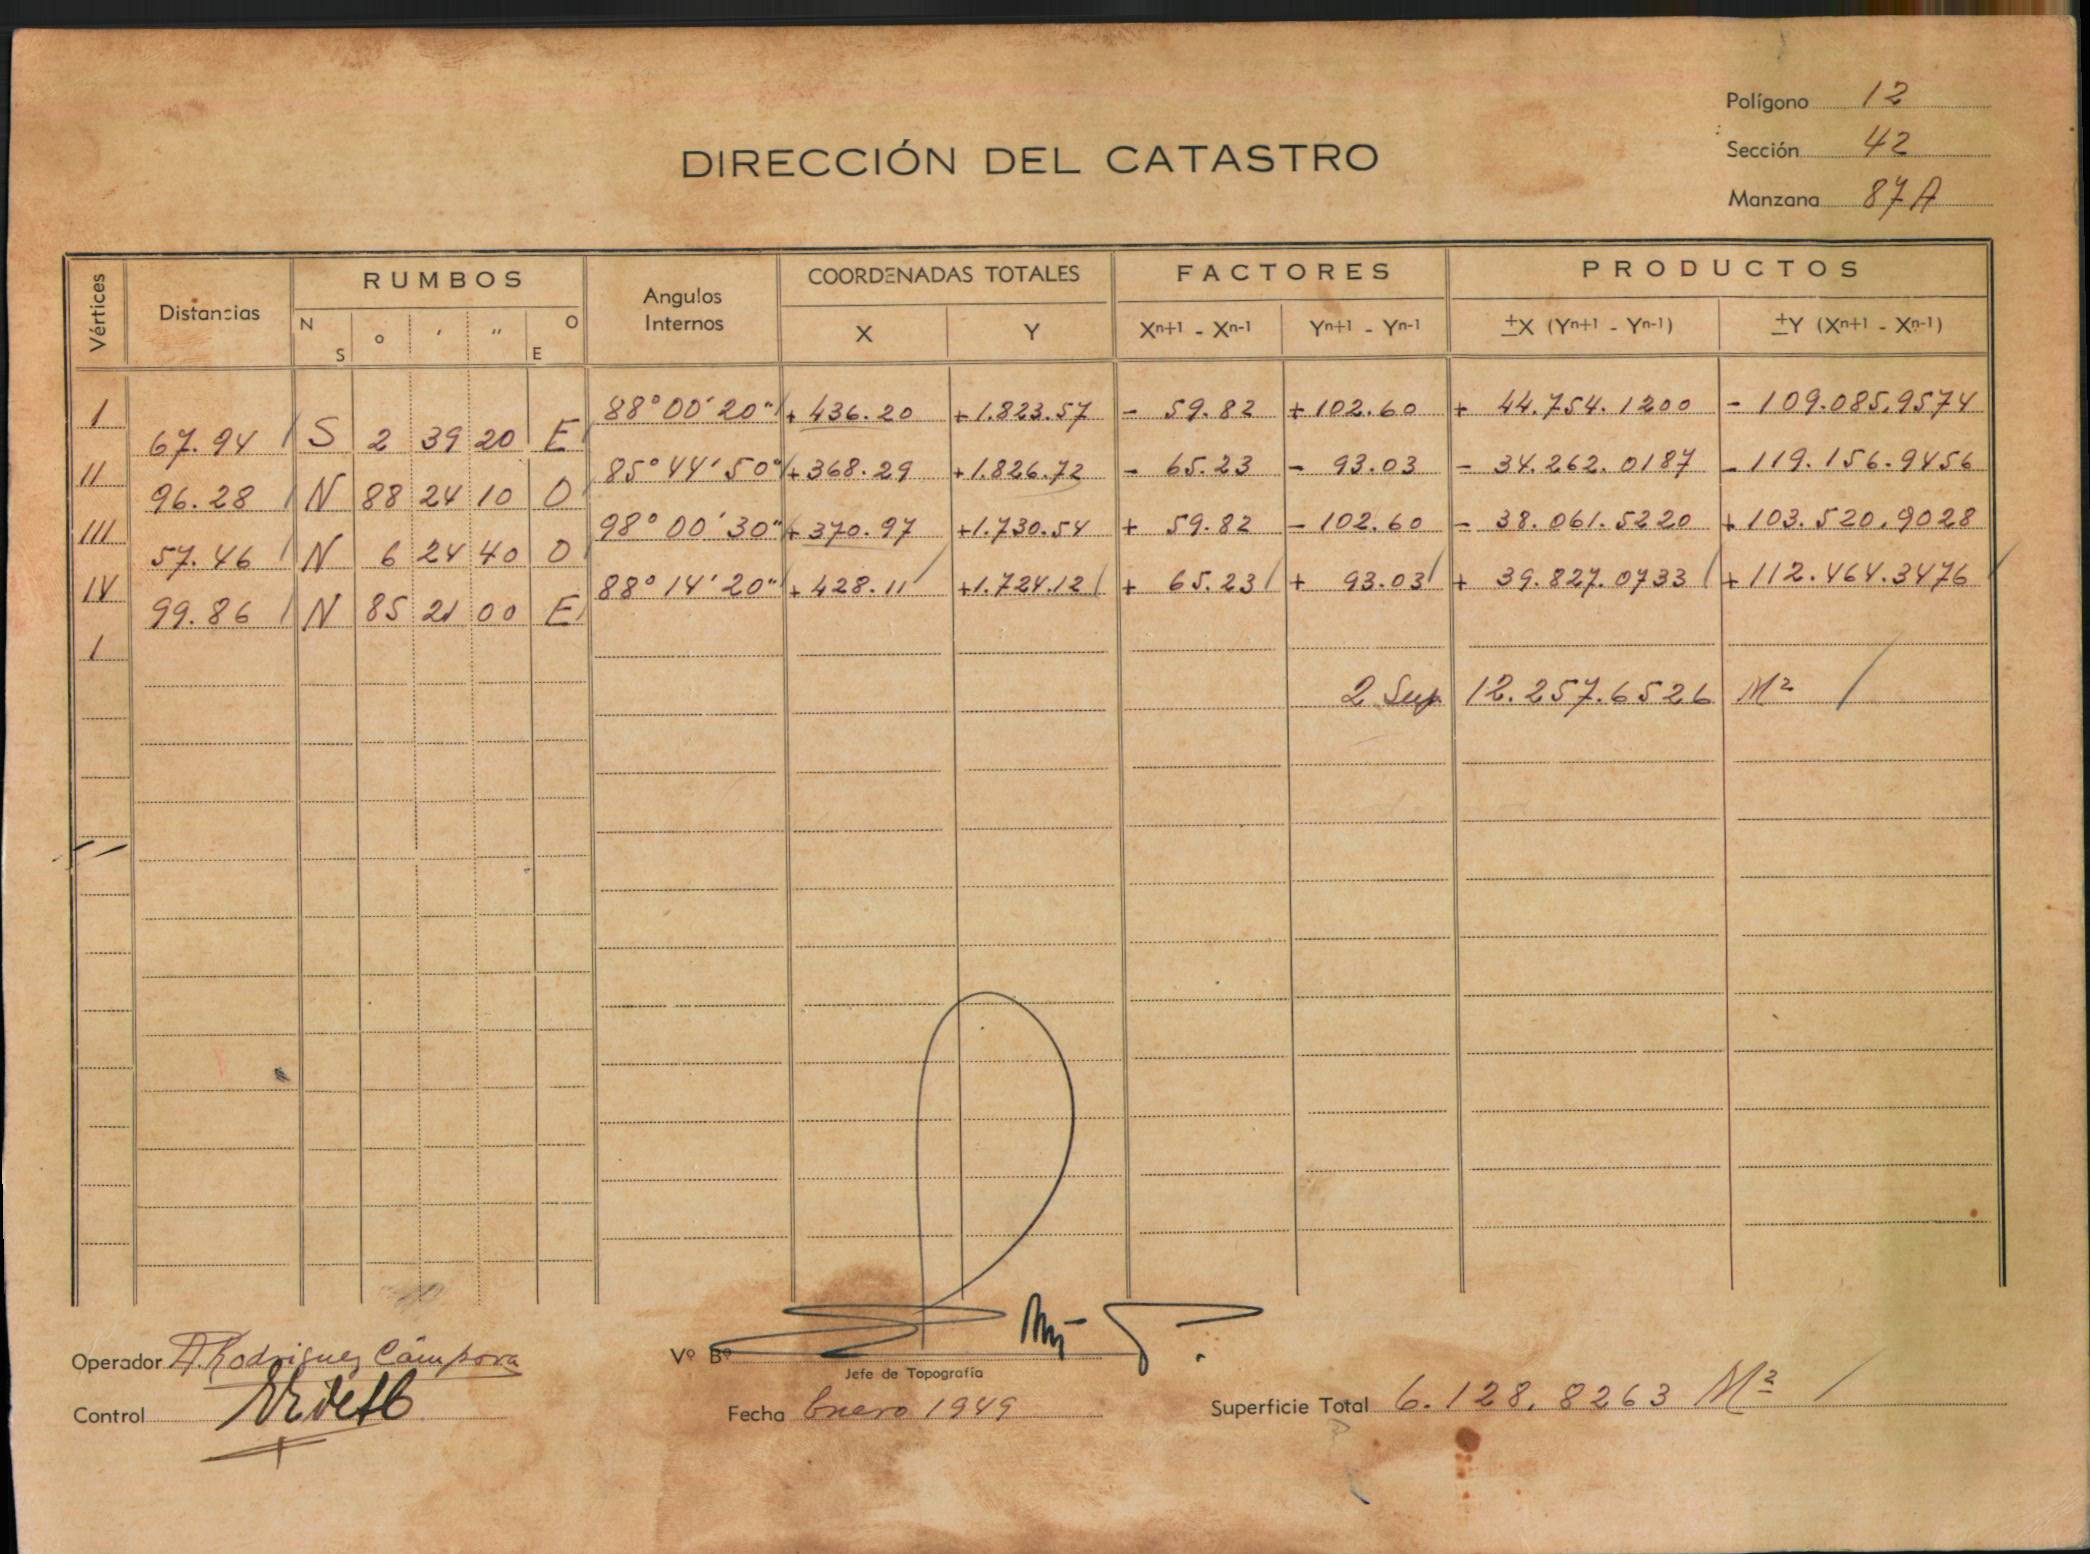 Polígono 12
Sección 42
Manzana 87A
DIRECCIÓN DEL CATASTRO
Vértices Distancias RUMBOS Angulos Internos COORDENADAS TOTALES FACTORES PRODUCTOS
N S o ' '' O E X Y Xn+1 - Xn-1 Yn+1 - Yn-1 ±X (Yn+1 - Yn-1) ±Y (Xn+1 - Xn-1)
I 88°00'20" + 436.20 + 1.823.57 - 59.82 + 102.60 + 44.754.1200 - 109.085.9574
67.94 S 2 39 20 E
II 85°44'50" + 368.29 + 1.826.72 - 65.23 - 93.03 - 34.262.0187 - 119.156.9456
96.28 N 88 24 10 O
III 98°00'30" + 370.97 + 1.730.54 + 59.82 - 102.60 - 38.061.5220 + 103.520.9028
57.46 N 6 24 40 O
IV 88°14'20" + 428.11 + 1.724.12 + 65.23 + 93.03 + 39.827.0733 + 112.464.3476
99.86 N 85 21 00 E
I
2 Sup 12.257.6526 M²
Operador A. Rodriguez Cámpora
Vº Bº
Jefe de Topografía
Control
Fecha Enero 1949
Superficie Total 6.128.8263 M²